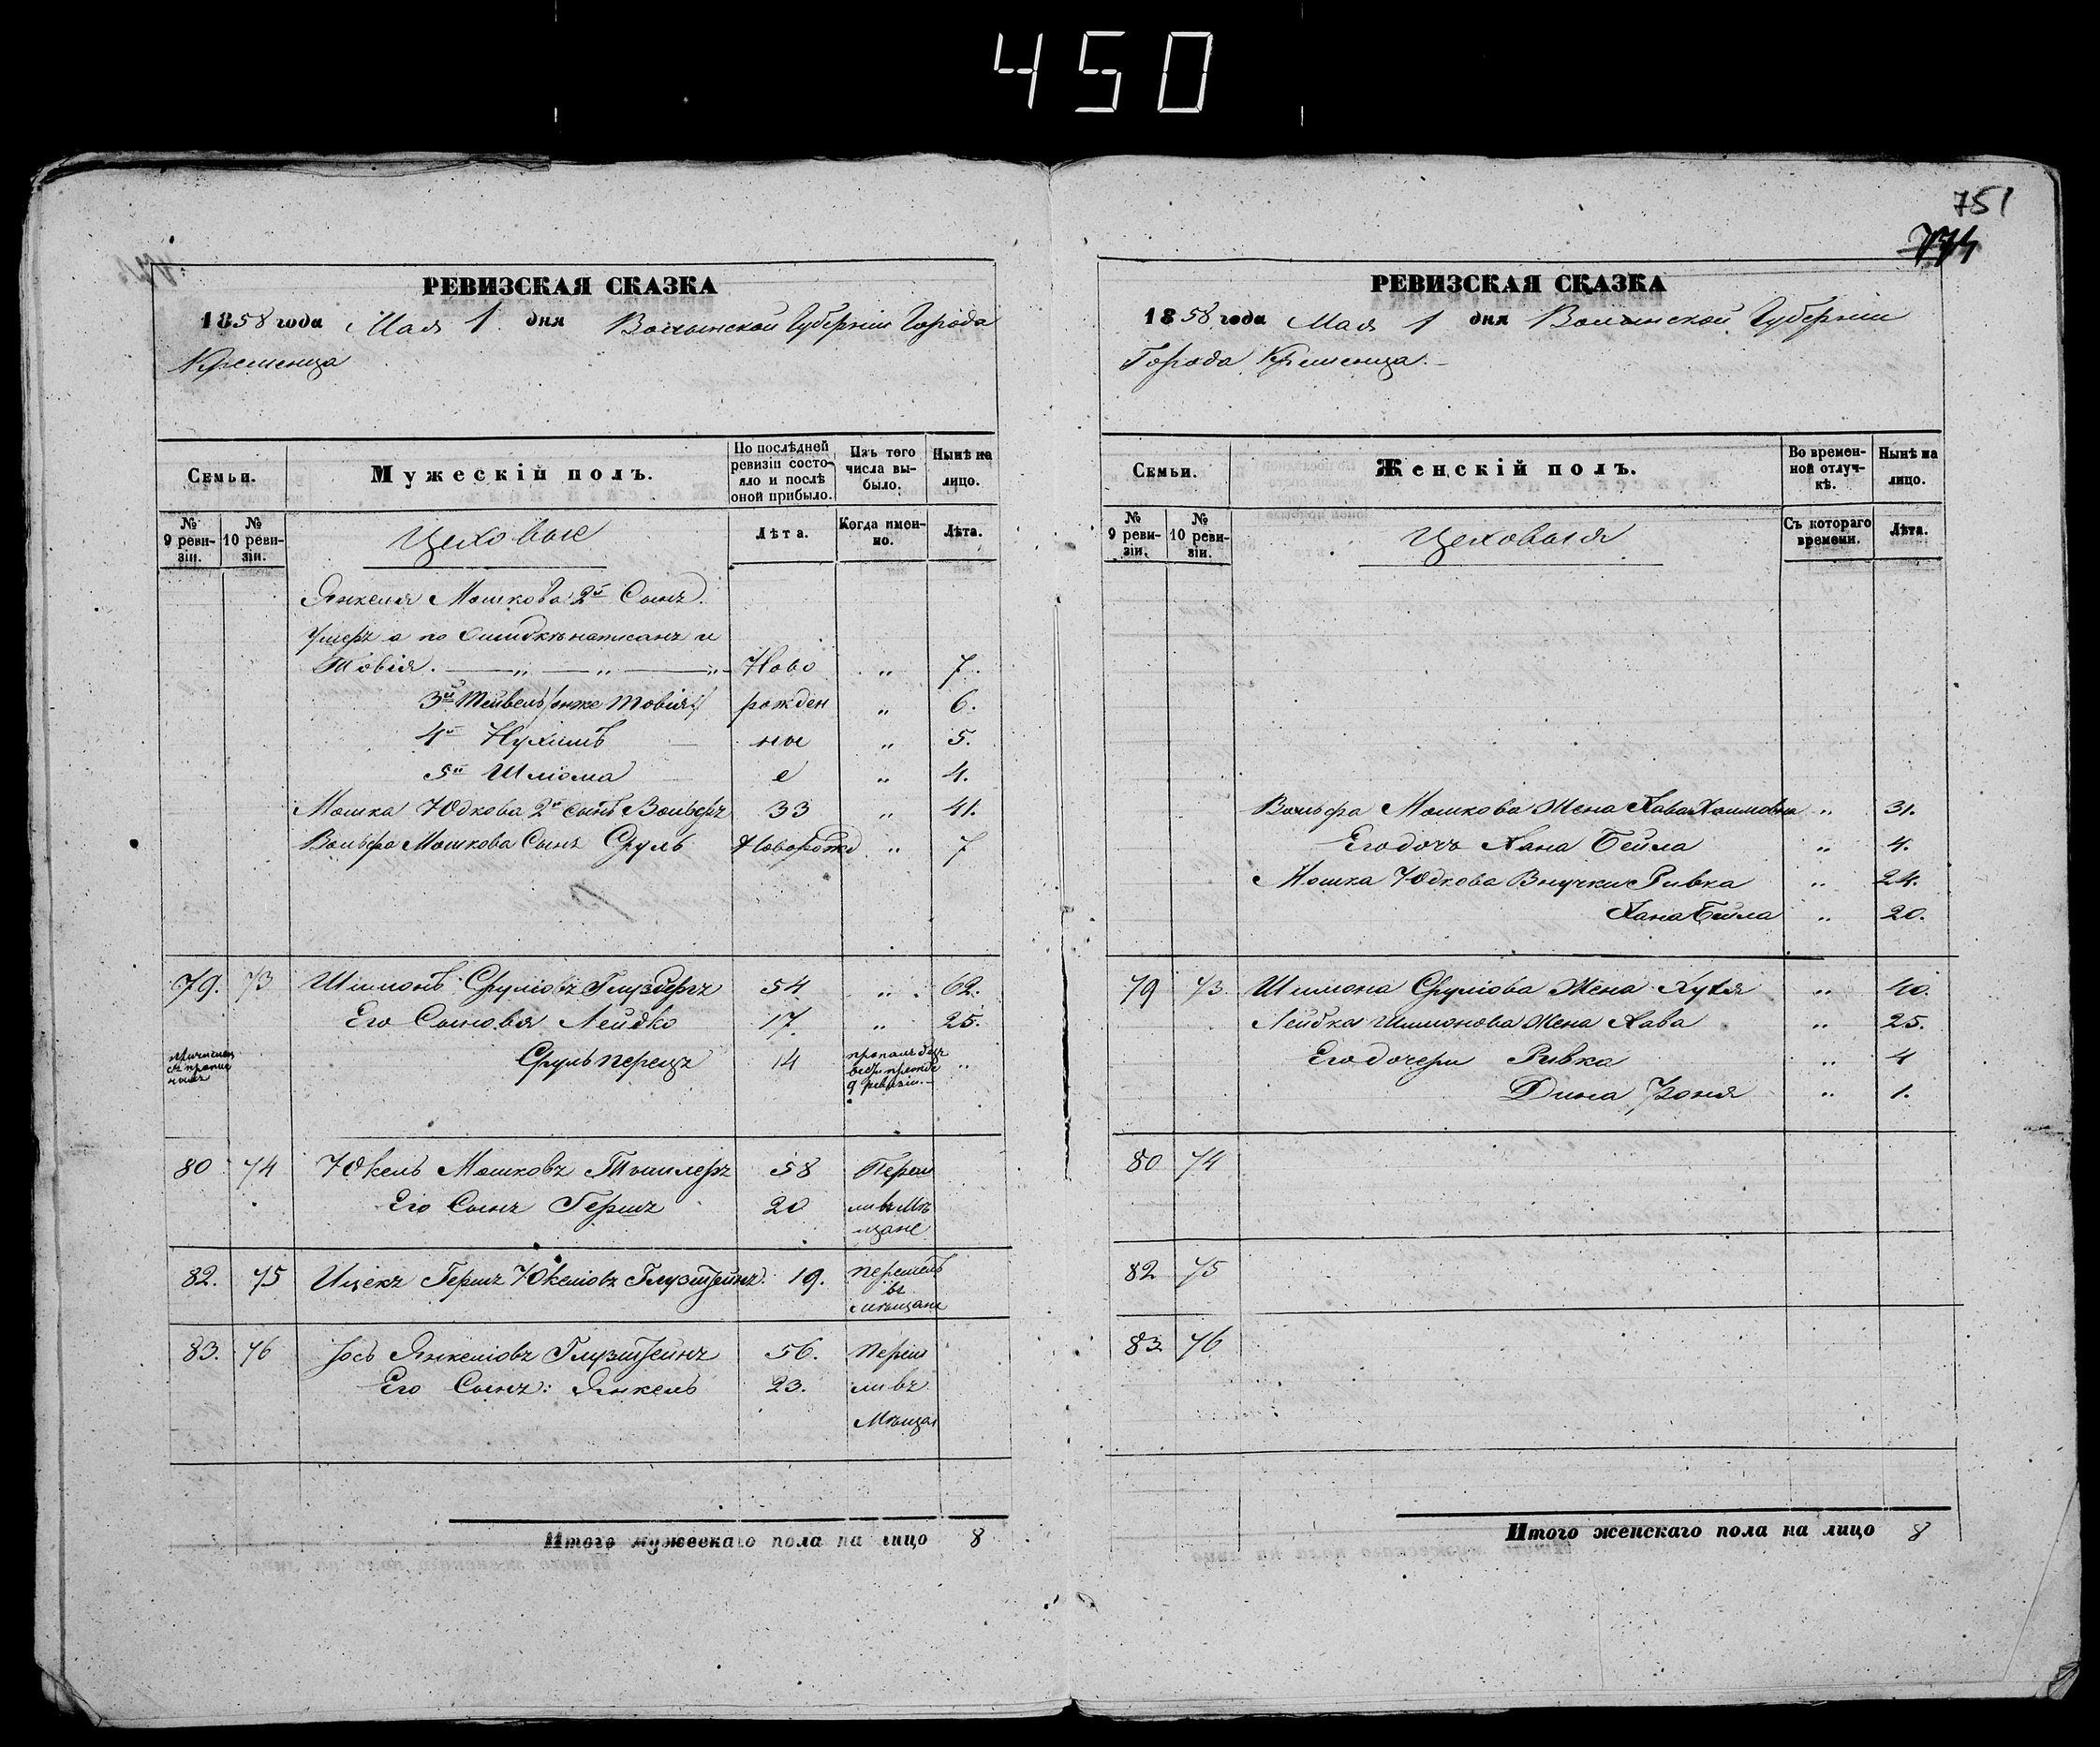 450
751
774
РЕВИЗСКАЯ СКАЗКА
1858 года Мая 1 дня Волынской Губерніи Города
Кременца
Семьи.
Мужескій полъ.
По послѣдней ревизіи состояло и послѣ оной прибыло.
Изъ того числа выбыло.
Нынѣ на лицо.
№ 9 ревизіи.
№ 10 ревизіи.
Цеховые
Лѣта.
Когда именно.
Лѣта.
Янкеля Мошкова 2й Сынъ
умеръ а по ошибкѣ написанъ и
Товія. — „ — „ — „ Ново „ 7.
3й Тейвель /онже Товія/ рожден „ 6.
4й Нухимъ ны „ 5.
5й Шліома е „ 4.
Мошка Юдкова 2й сынъ Вольфъ 33 „ 41.
Вольфа Мошкова Сынъ Сруль Новорожд „ 7
79. 73 Шимонъ Сруліовъ Глузбергъ 54. „ 62.
Его Сыновья Лейбко 17. „ 25.
Сруль перецъ 14 пропалъ безъ вести прежде 9 ревизіи. „
80 74 Юкель Мошковъ Тышлеръ 58 Переш
Его Сынъ Гершъ 20 ли въ Мѣ
щане
82. 75 Ицекъ Гершъ Юкеліовъ Глузштейнъ. 19. перешелъ
въ
мѣщане
83. 76 Іось Янкеліовъ Глузштейнъ 56. Переш
Его Сынъ: Янкель 23. ли въ
Мѣщан
Итого мужескаго пола на лицо 8
РЕВИЗСКАЯ СКАЗКА
1858 года Мая 1 дня Волынской Губерніи
Города Кременца.
Семьи.
Женскій полъ.
Во временной отлучкѣ.
Нынѣ на лицо.
№ 9 ревизіи.
№ 10 ревизіи.
Цеховыя
Съ котораго времени.
Лѣта.
Вольфа Мошкова Жена Хава Хаимовна „ 31.
Его дочъ Хана Бейла „ 4.
Мошка Юдкова Внучки Ривка „ 24.
Хана Бейла „ 20.
79 73. Шимона Сруліова Жена Хукя „ 40.
Лейбка Шимонова Жена Хава „ 25.
Его дочери Ривка „ 4
Дина „ 1.
80 74
82 75
83 76
Итого женскаго пола на лицо 8